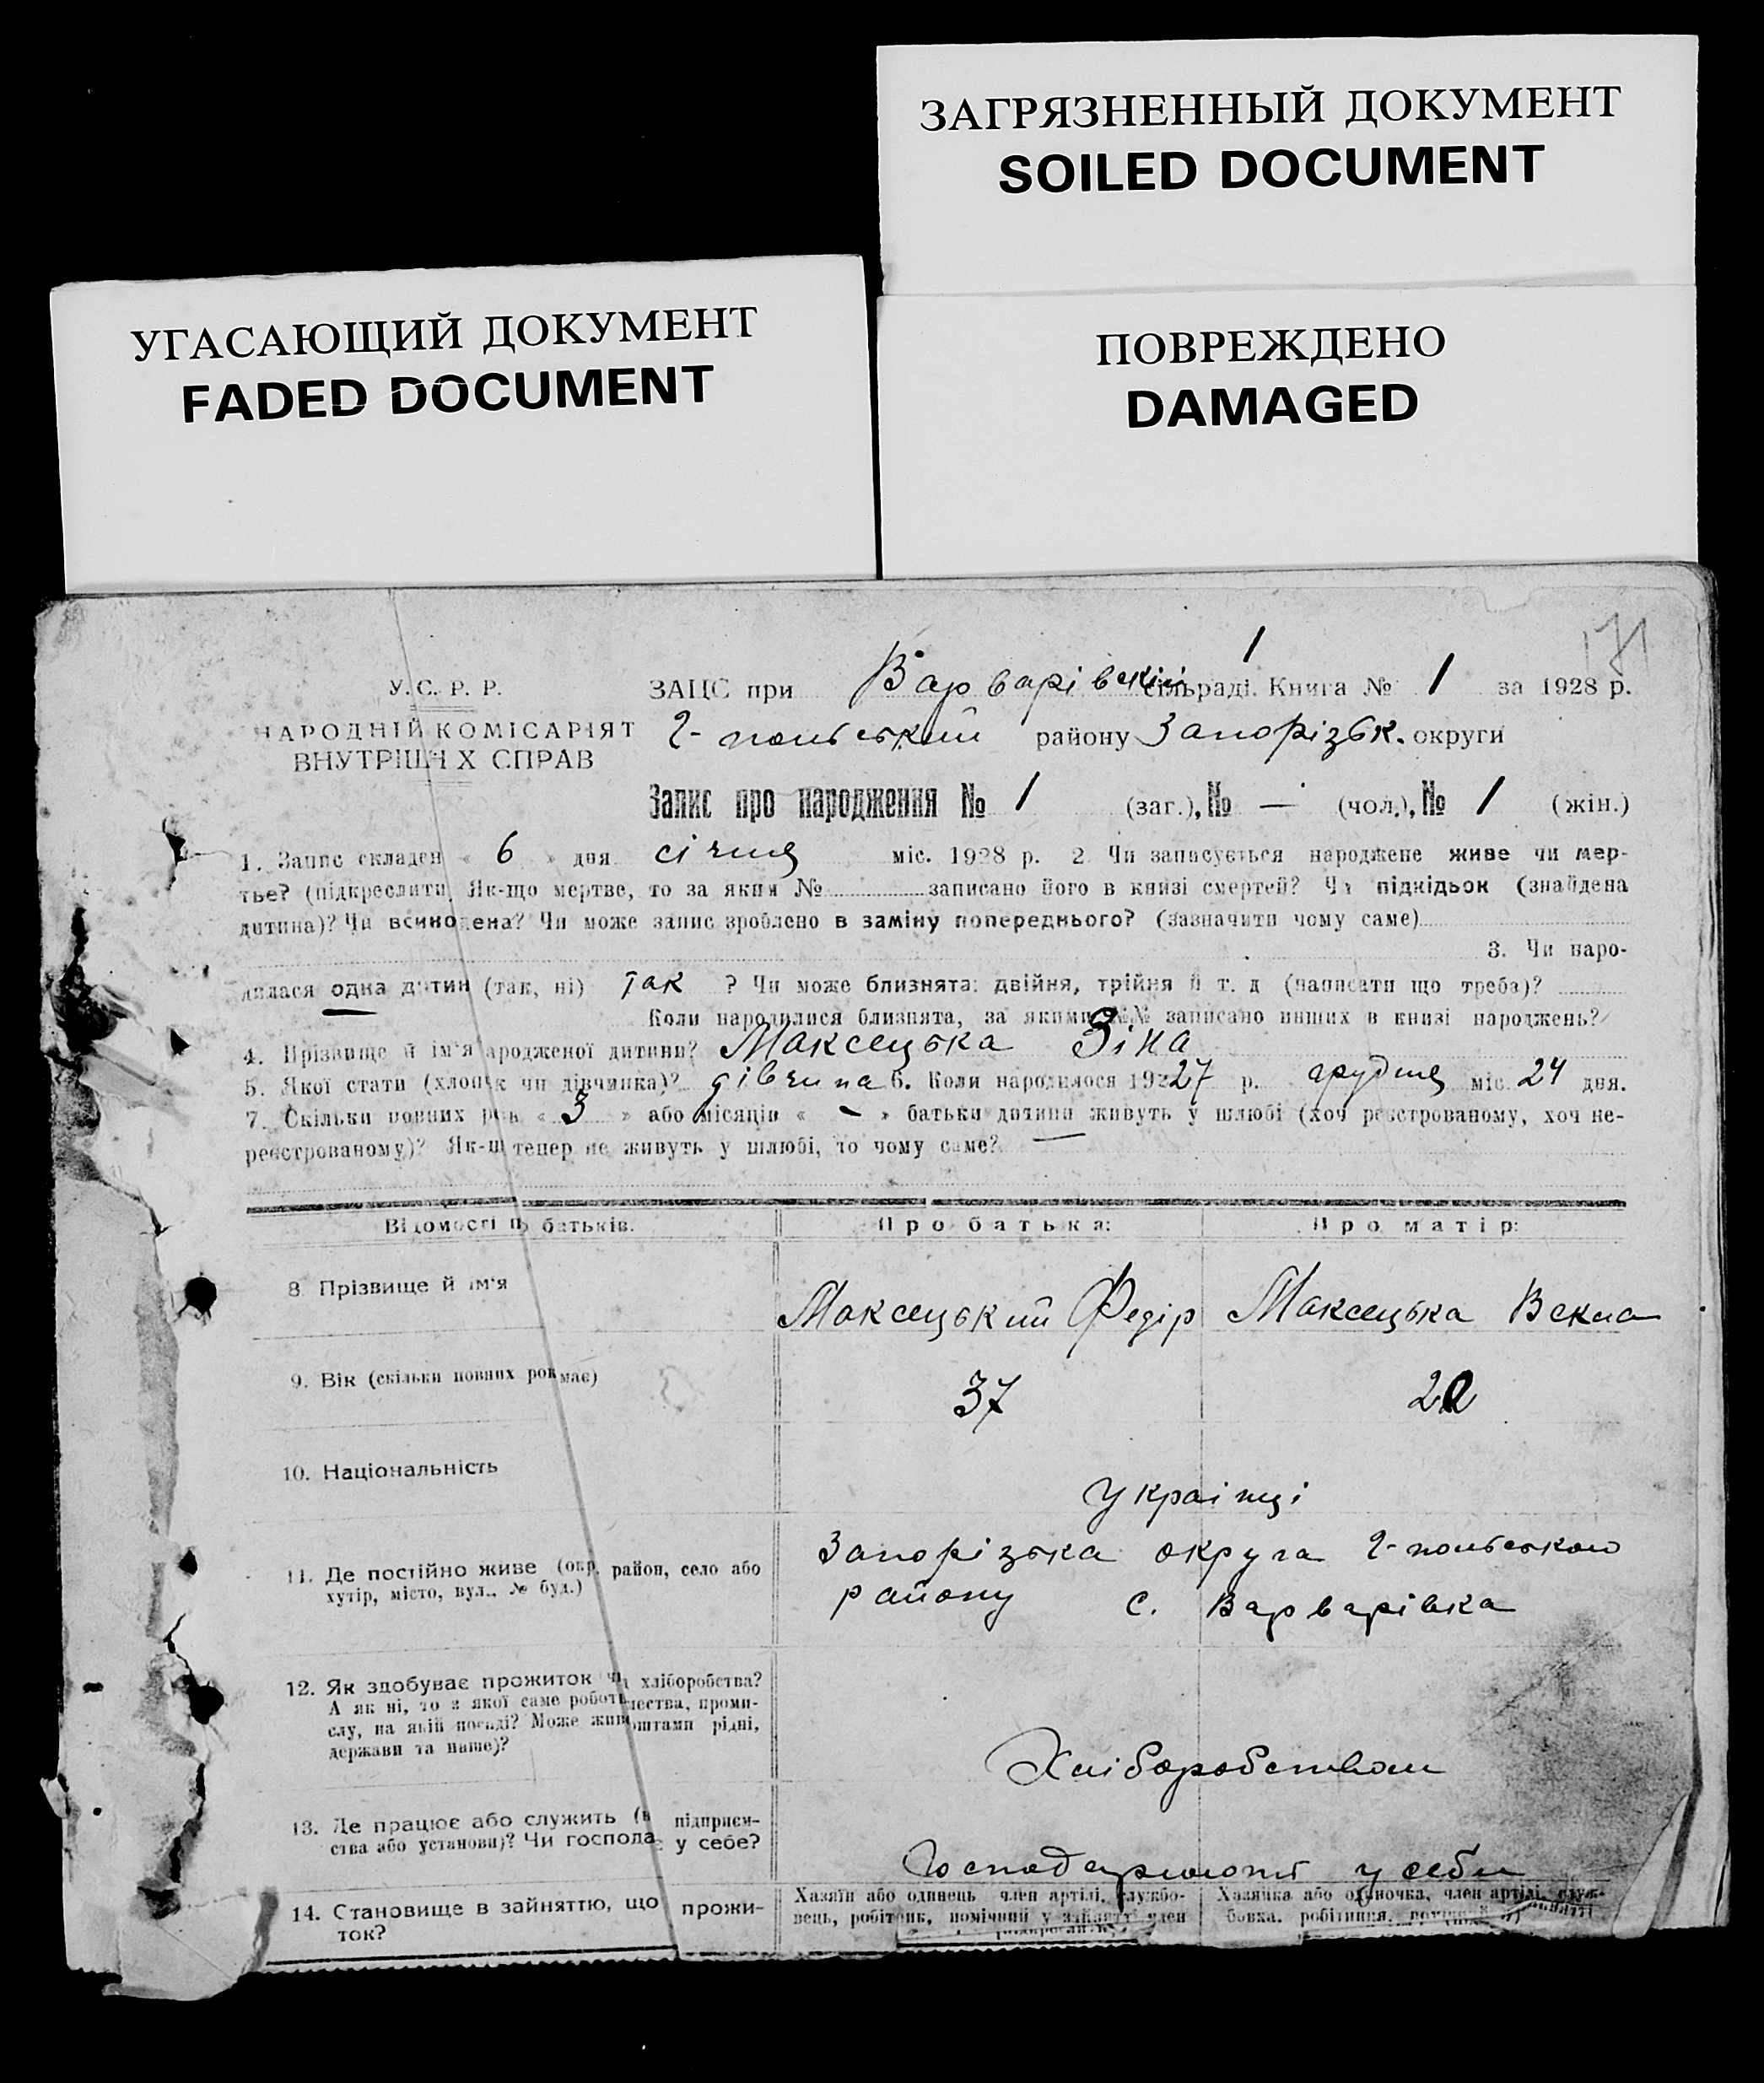 ЗАГРЯЗНЕННЫЙ ДОКУМЕНТ
SOILED DOCUMENT
УГАСАЮЩИЙ ДОКУМЕНТ
FADED DOCUMENT
ПОВРЕЖДЕНО
DAMAGED
171
1
У. С. Р. Р.
НАРОДНІЙ КОМІСАРІЯТ
ВНУТРІШНІХ СПРАВ
ЗАЦС при Варварівській сільраді. Книга № 1 за 1928 р.
району Запорізьк. округи
Запис про народження № 1 (заг.), № — (чол.), № 1 (жін.)
1. Запис складен « 6 » дня січня міс. 1928 р. 2 Чи записується народжене живе чи мер-
тве? (підкреслити. Як-що мертве, то за яким № записано його в книзі смертей? Чи підкідьок (знайдена
дитина)? Чи всиновлена? Чи може запис зроблено в заміну попереднього? (Зазначити чому саме)
3. Чи наро-
дилася одна дитин (так, ні) так ? Чи може близнята: двійня, трійня й т. д (написати що треба)?
Коли народилися близнята, за якими №№ записано инших в книзі народжень?
4. Прізвище й ім'я народженої дитини? Максецька Зіна
5. Якої стати (хлопчик чи дівчинка)? дівчина 6. Коли народилося 1927 р. грудня міс. 24 дня.
7. Скільки повних років « 3 » або місяців « - » батьки дитини живуть у шлюбі (хоч реєстрованому, хоч не-
реєстрованому)? Як-що тепер не живуть у шлюбі, то чому саме? —
Відомості про батьків. Про батька: Про матір:
8. Прізвище й ім'я Максецький Федір Максецька
9. Вік (скільки повних років має) 37
10. Національність українці
11. Де постійно живе (окр. район, село або Запорізька округа
хутір, місто, вул., № буд.) району с. Варварівка
12. Як здобуває прожиток чи з хліборобства?
А як ні, то з якої саме роботи, проми-
слу, на якій посаді? Може живе коштами рідні,
держави та инше)?
Хліборобством
13. Де працює або служить підприєм-
ства або установи)? Чи господарює у себе?
Господарюють у себе
14. Становище в зайняттю, що прожи-
ток?
Хазяїн або одинець член артілі, службо-
вець, робітник, помічний у занятті член
Хазяйка або одиночка, член артілі, служ-
бовка, робітниця,